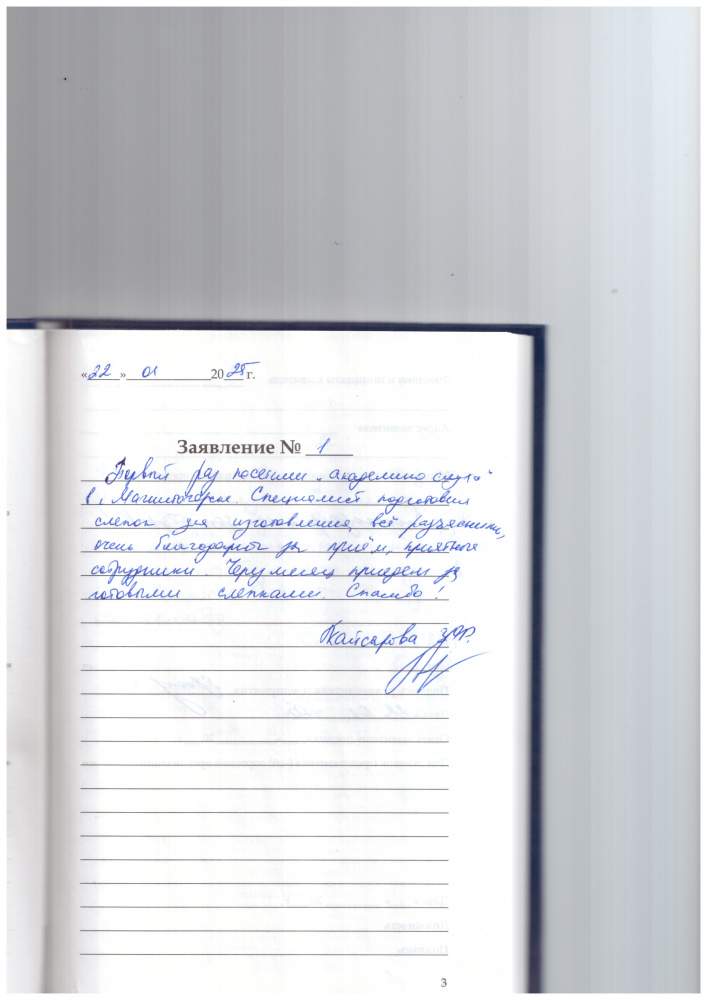 «22» 01 2025 г.
Заявление № 1
Первый раз посетили „Академию слуха"
в г. Магнитогорске. Специалист подготовил
слепок для изготовления, всё разъяснили,
очень благодарны за приём, приятные
сотрудники. Через месяц приедем за
готовыми слепками. Спасибо!
Кайсарова
3